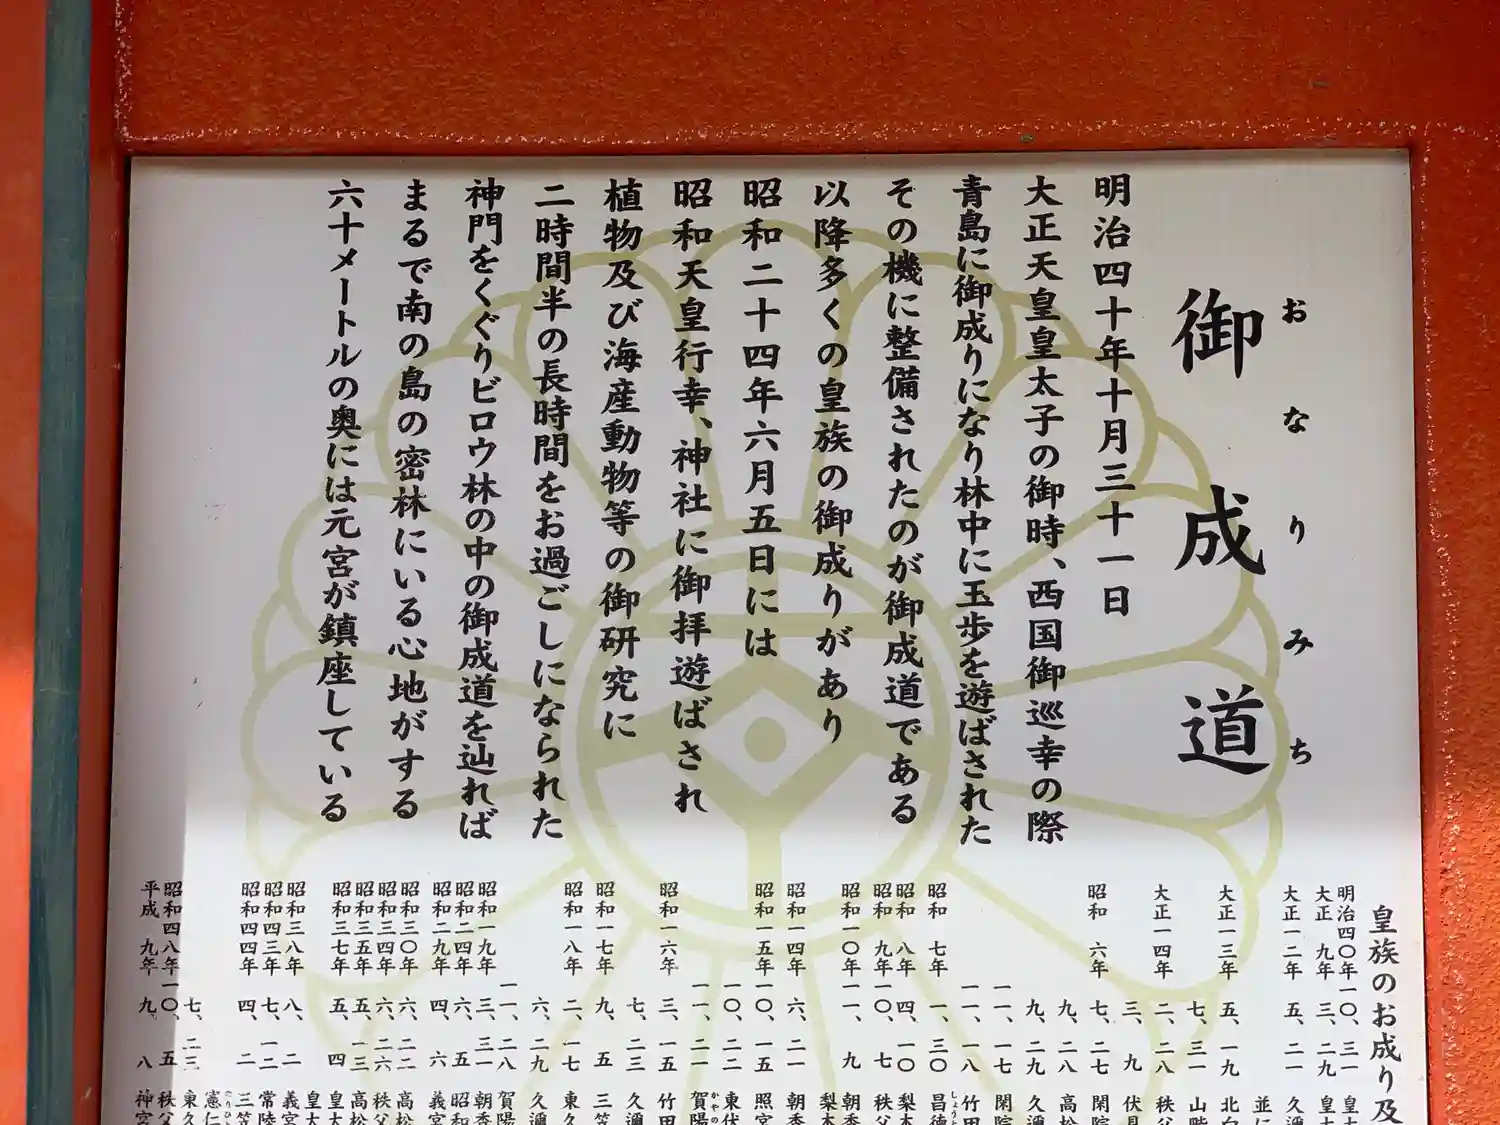 おなりみち
御成道
明治四十年十月三十一日
大正天皇皇太子の御時、西国御巡幸の際
青島に御成りになり林中に玉歩を遊ばされた
その機に整備されたのが御成道である
以降多くの皇族の御成りがあり
昭和二十四年六月五日には
昭和天皇行幸、神社に御拝遊ばされ
植物及び海産動物等の御研究に
二時間半の長時間をお過ごしになられた
神門をくぐりビロウ林の中の御成道を辿れば
まるで南の島の密林にいる心地がする
六十メートルの奥には元宮が鎮座している
皇族のお成り及
明治四〇年一〇、三一 皇太
大正 九年 三、二九 皇太
大正一二年 五、二一 久邇
並に
大正一三年 五、一九 北白
七、三一 山階
大正一四年 二、二八 秩父
三、九 伏見
昭和 六年 七、二七 閑院
九、二八 高松
九、二九 久邇
一一、一七 閑院
一一、一八 竹田
昭和 七年 一、三〇 昌徳
昭和 八年 四、一〇 梨本
昭和 九年 一〇、七 秩父
昭和一〇年 一一、九 朝香
梨本
昭和一四年 六、二一 朝香
昭和一五年 一〇、一五 照宮
一〇、二二 東伏
一一、二一 賀陽
昭和一六年 三、一五 竹田
七、二三 久邇
昭和一七年 九、五 三笠
昭和一八年 二、一七 東久
六、二九 久邇
一一、二八 賀陽
昭和一九年 三、三一 朝香
昭和二四年 六、五 昭和
昭和二九年 四、六 義宮
昭和三〇年 六、二二 高松
昭和三四年 六、二六 秩父
昭和三五年 五、一三 高松
昭和三七年 五、四 皇太
皇太
昭和三八年 八、二 義宮
昭和四三年 七、一二 常陸
昭和四四年 四、二 三笠
憲仁
七、二三 東久
昭和四八年 一〇、五 秩父
平成 九年 九、八 神宮